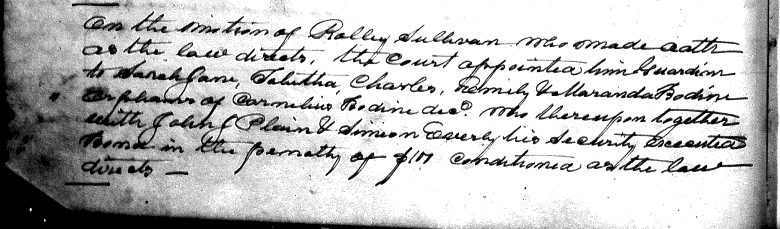 On the motion of Rolley Sullivan who made oath
as the law directs, the Court appointed him Guardian
to Sarah Jane, Tabitha, Charles, Family & Maranda Bodine
Orphans of Cornelius Bodine decd. who thereupon together
with John J Plain & Simeon Everly his Security Executed
Bond in the penalty of $100 conditioned as the law
directs —